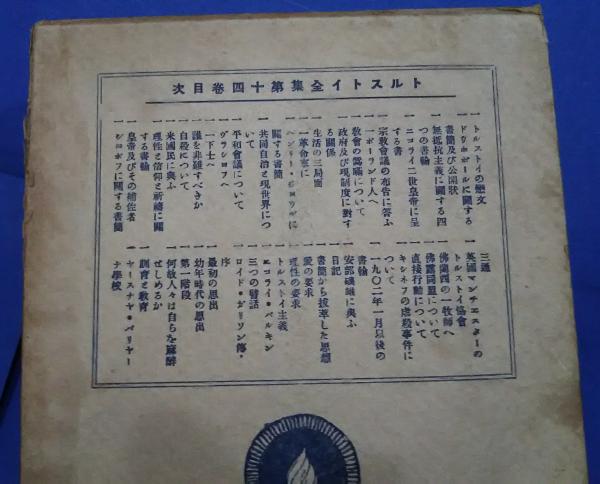 トルストイ全集第十四卷目次
一トルストイの戀文
一ドウホボールに關する
書簡及び公開狀
一無抵抗主義に關する四
つの書翰
一ニコライ二世皇帝に呈
する書
一宗敎會議の布告に答ふ
一ポーランド人へ
一敎會の欺瞞について
一政府及び現制度に對す
る關係
一生活の三局面
一革命家に
一ヘンリー・ジョージに
關する書簡
一共同自治と現世界につ
いて
一平和會議について
一ヴラシコフへ
一下士卒へ
一誰を非難すべきか
一自殺について
一米國民に與ふ
一理性と信仰と祈禱に關
する書翰
一皇帝及びその補佐者
一ジロボフに關する書簡
三通
一英國マンチエスターの
トルストイ協會へ
一佛蘭西の一牧師へ
一佛露同盟について
一直接行動について
一キシネフの虐殺事件に
ついて
一一九〇二年一月以後の
書翰
一安部磯雄に與ふ
一日記
一書簡から拔萃した思想
一愛の要求
一理性の要求
一トルストイ主義
一ニコライ・パルキン
一三つの譬話
一ロイド・ガリソン傳・
序
一最初の思出
一幼年時代の思出
一第一階段
一何故人々は自らを麻醉
せしめるか
一訓育と敎育
一ヤースナヤ・パリヤー
ナ學校